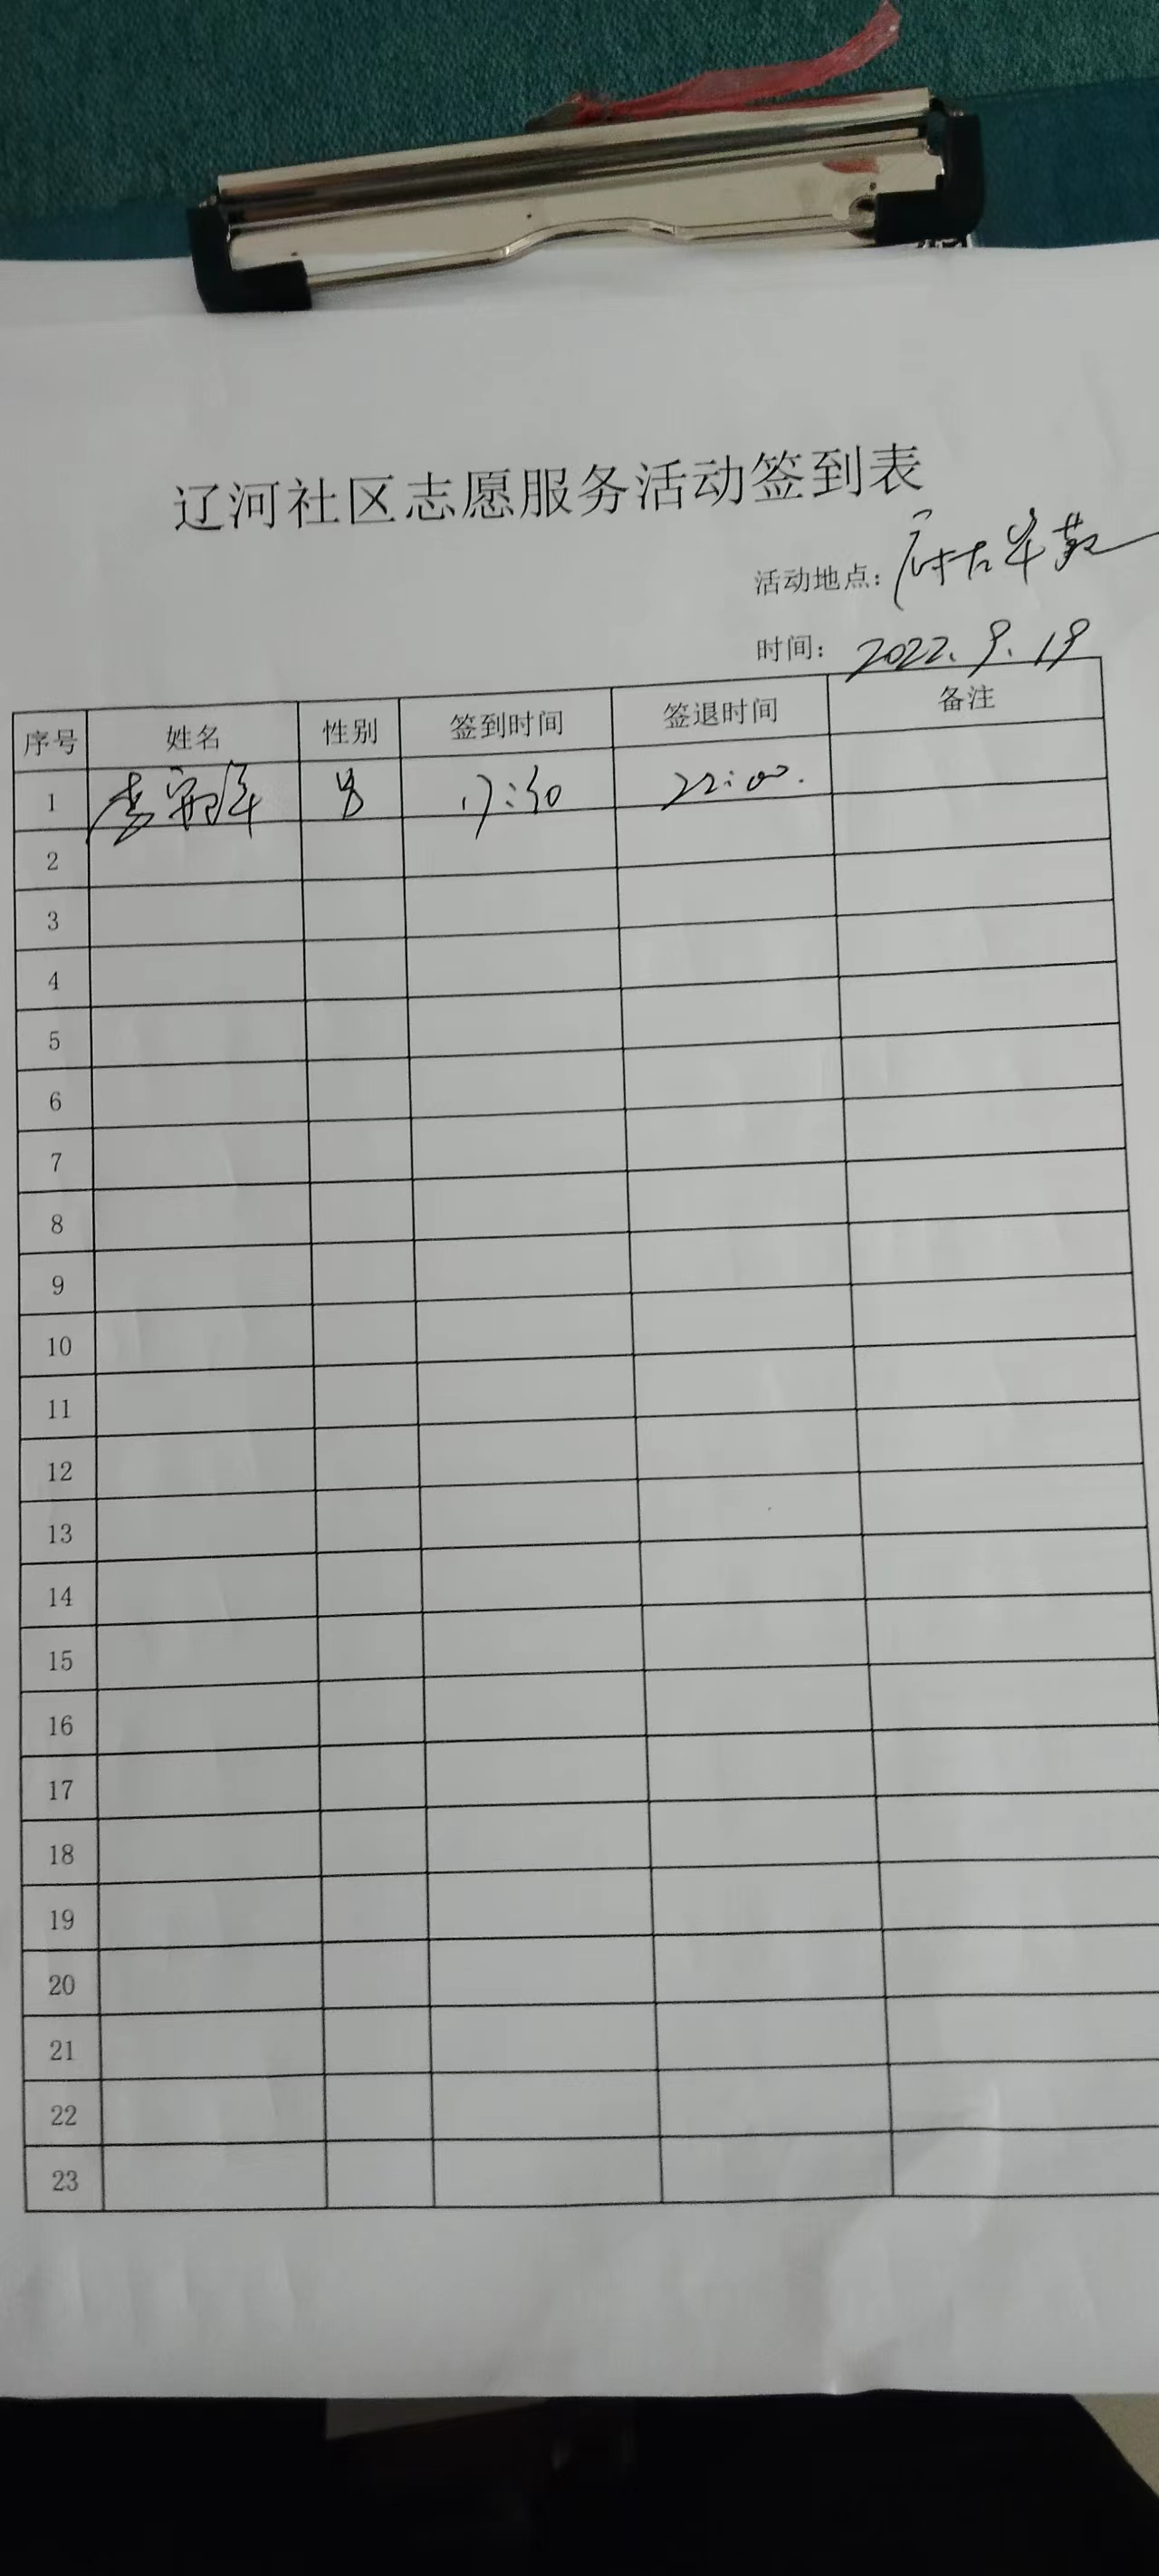 辽河社区志愿服务活动签到表
活动地点：
时间：2022.9.19
序号 姓名 性别 签到时间 签退时间 备注
1 李 男 17:30 22:00.
2
3
4
5
6
7
8
9
10
11
12
13
14
15
16
17
18
19
20
21
22
23